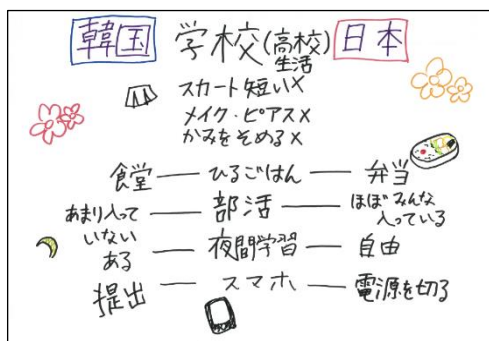 韓国 学校(高校)生活 日本
スカート短い×
メイク・ピアス×
かみをそめる×
食堂 — ひるごはん — 弁当
あまり入っていない — 部活 — ほぼみんな入っている
ある — 夜間学習 — 自由
提出 — スマホ — 電源を切る